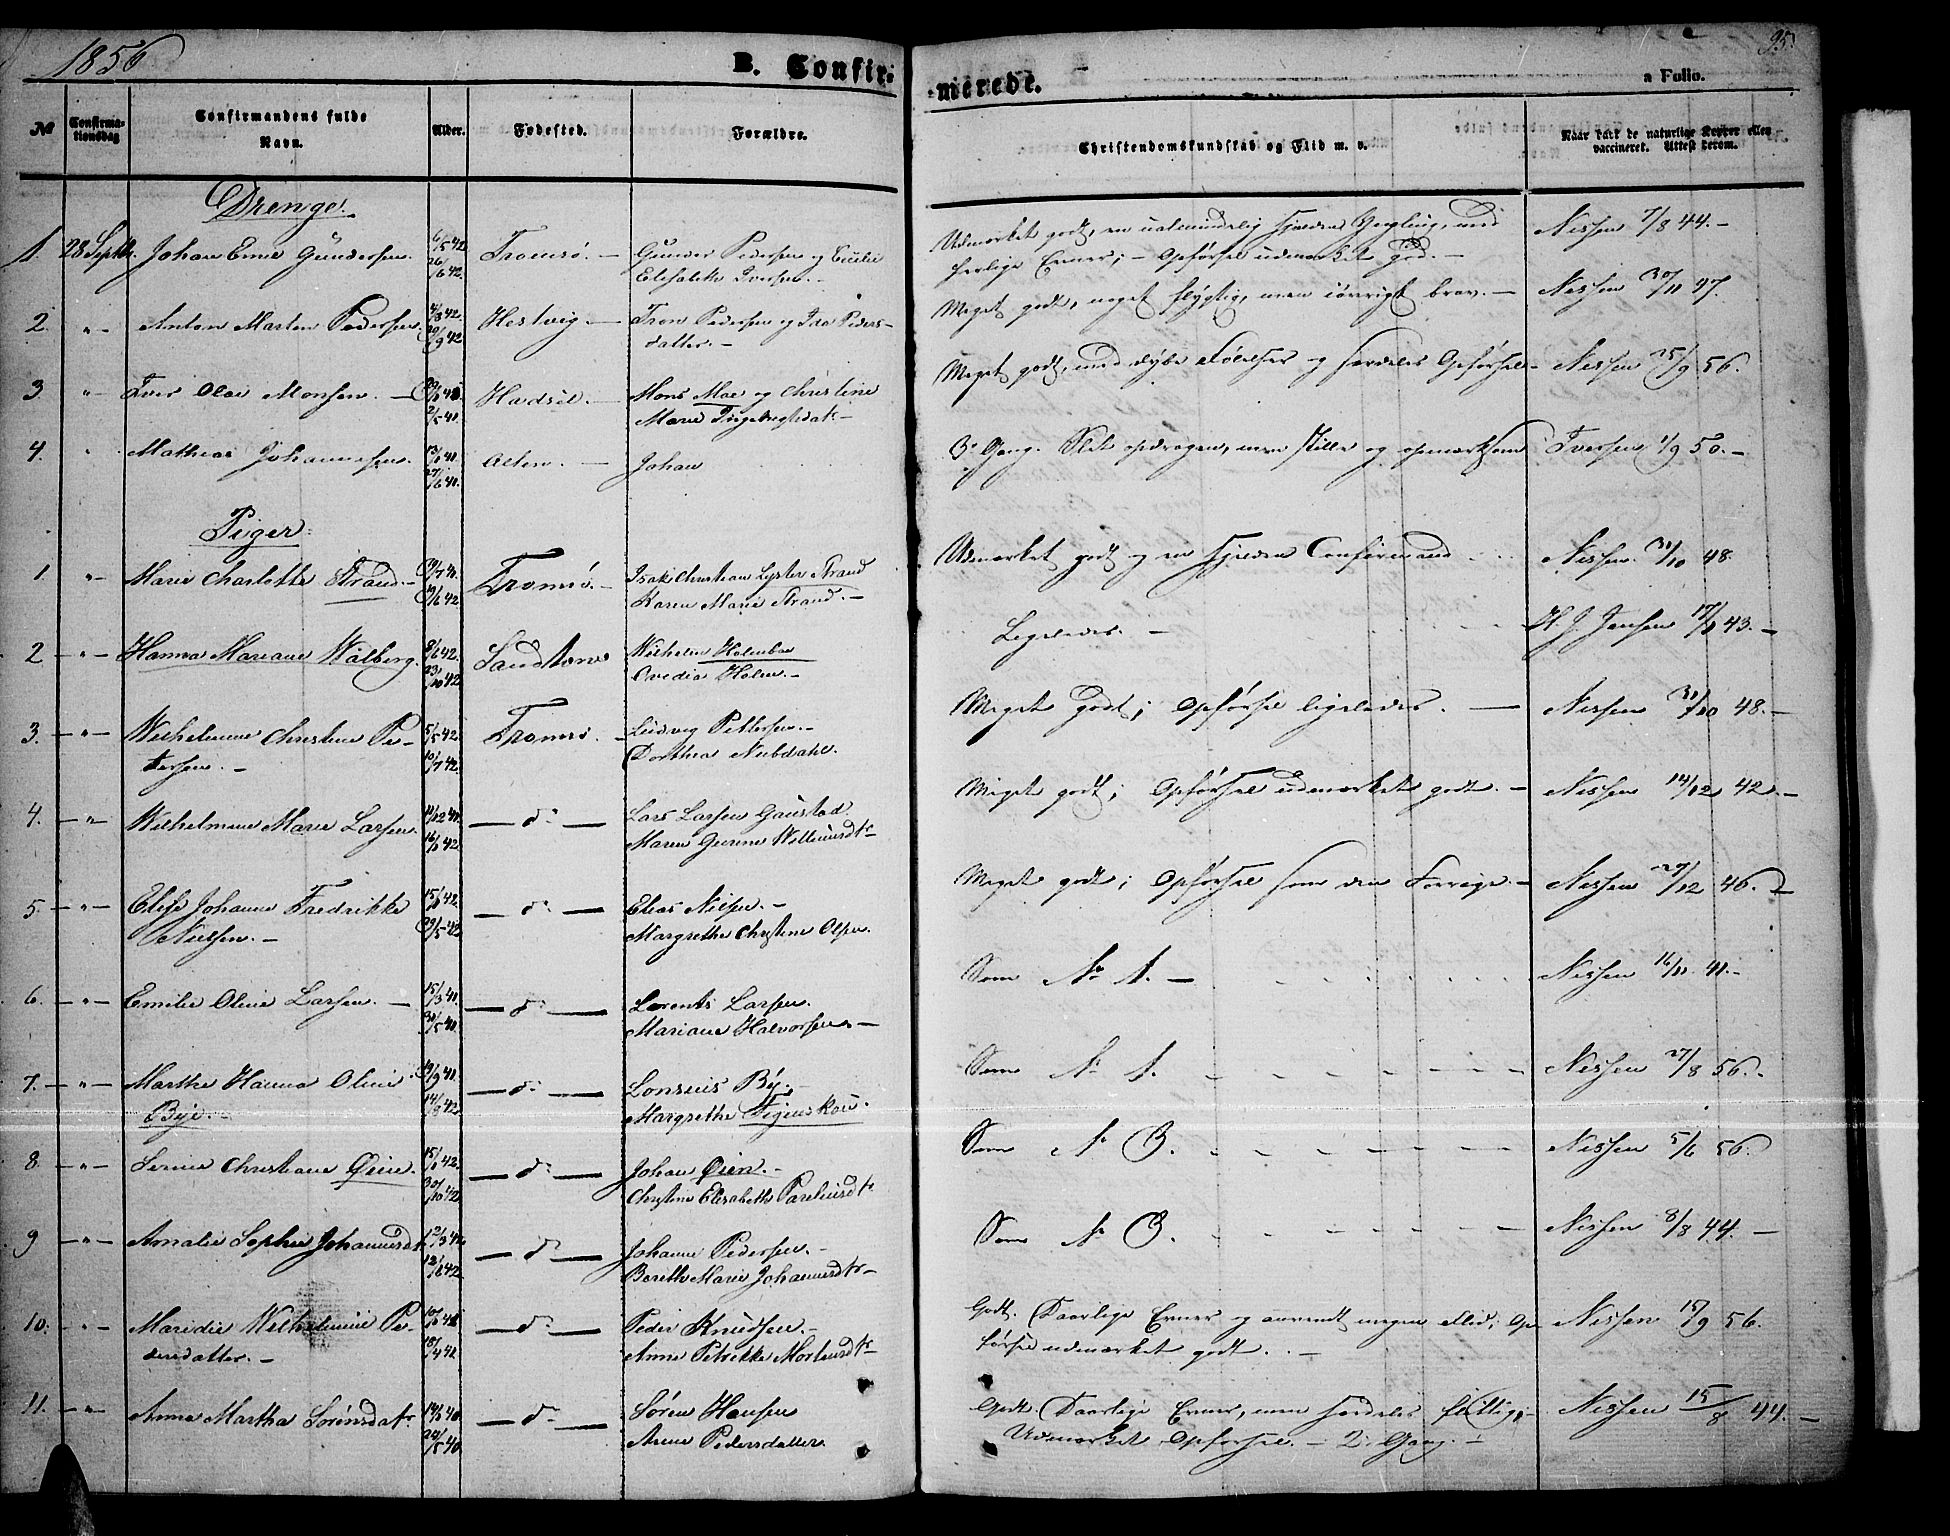 1856
B. Confir-
merede.
95.
a Folio.
No
Confirma-
tionsdag
Confirmandens fulde
Navn.
Alder.
Fødested.
Forældre.
Christendomskundskab og Flid m. v.
Naar havt de naturlige Kopper eller
vaccineret. Attest derom.
Drenge.
1. 28 Septbr. Johan Enne Gundersen. 6/5 42. 26/6 42. Tromsø. — Gunder Pedersen og Cecilie
Elisabeth Iversen. —
Udmærket godt, en ualmindelig sjelden Yngling, med
herlige Evner; — Opførsel udmærket god. —
Nissen 7/8 44. —
2. —"— Anton Marten Pedersen. 4/8 42. 29/9 42. Hestvig. — Tron Pedersen og Ida Peders-
datter. —
Meget godt, noget flygtig, men iøvrigt brav. — Nissen 30/11 47.
3 —"— Iver Olai Monsen. — 2/5 41. Hadsel. — Mons Moe og Christine
Marie Ingebrigtsdat —
Meget godt, med dybe Følelser og særdeles Opførsel — Nissen 25/9 56.
4. " Mathias Johannesen. 27/6 41. Alten. — Johan
3e Gang. Slet opdragen, men stille og opmærksom Iversen 1/9 50. —
Piger
1. —"— Marie Charlotte Strand. — Tromsø. — Isak Christian Lyster Strand
Karen Marie Strand. —
Udmærket godt og en sjelden Confirmand Nissen 31/10 48.
2 —"— Hanna Mariane Walberg. 8/6 42. 23/10 42 Sandtorv Wilhelm Holmboe
Ovedia Holm. —
Ligeledes. — H. J. Jensen 17/8 43. —
3. —"— Wilhelmine Christine Pe-
tersen. — 5/5 42. 10/7 42. Tromsø. — Ludvig Pettersen. —
Dorthea Neubdahl.
Meget godt; Opførsel ligeledes. — Nissen 31/10 48. —
4. —"— Wilhelmine Marie Larsen. 11/12 41. 16/1 42. — do — Lars Larsen Gaustad.
Maren Gurine Willumsdtr
Meget godt; Opførsel udmærket godt. — Nissen 14/12 42. —
5. —"— Elise Johanne Fredrikke
Nielsen. — 15/1 42. 29/5 42. — do — Elias Nielsen. —
Margrethe Christine Olsen.
Meget godt; Opførsel som den Forrige. — Nissen 27/12 46. —
6. —"— Emilie Oline Larsen. — 15/3 41. 30/5 41. — do — Lorents Larsen.
Mariane Halvorsen —
Som No 1. — Nissen 16/11 41. —
7. —"— Marthe Hanna Oline
Bye. — 19/9 41. 14/8 42. — do — Lonsius By. —
Margrethe Figenskou.
Som No 1. Nissen 27/8 56. —
8. —"— Serine Christiane Øien. 15/1 42. 30/10 42. — do — Johan Øien. —
Christine Elisabeth Pareliusdtr
Som No 3. Nissen 5/6 56.
9 —"— Amalie Sophie Johannesdt. 12/3 42. 12/6 42. — do — Johannes Pedersen. —
Berith Marie Johannesdtr —
Som No 3. Nissen 8/8 44. —
10. —"— Maridie Wilhelmine Pe-
dersdatter. — 18/4 41. — do — Peder Knudsen. —
Anne Petrikke Mortensdtr —
Godt. Daarlige Evner og anvendt megen Flid; Op-
førsel udmærket godt. — Nissen 15/9 56.
11. —"— Anna Martha Sørensdatr 24/5 40. — do — Søren Hansen
Arene Pedersdatter.
Godt. Daarlige Evner, men særdeles flittig; —
Udmærket Opførsel. — 2. Gang. — Nissen 15/8 44. —